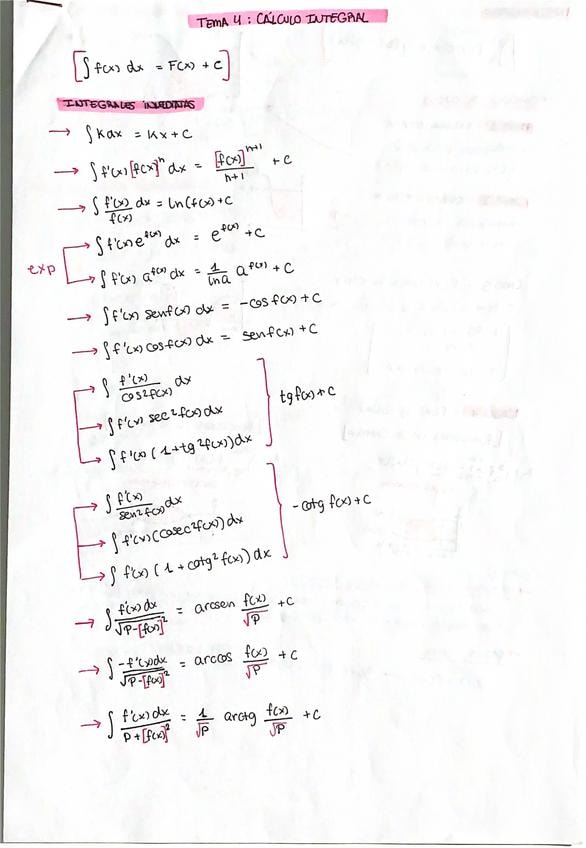 TEMA 4: CÁLCULO INTEGRAL
[∫ f(x) dx = F(x) + C]
INTEGRALES INMEDIATAS
→ ∫ K dx = Kx + C
→ ∫ f'(x) [f(x)]^n dx = [f(x)]^(n+1) / (n+1) + C
→ ∫ f'(x)/f(x) dx = ln(f(x) + C
exp
→ ∫ f'(x) e^f(x) dx = e^f(x) + C
→ ∫ f'(x) a^f(x) dx = 1/ln a a^f(x) + C
→ ∫ f'(x) sen f(x) dx = -cos f(x) + C
→ ∫ f'(x) cos f(x) dx = sen f(x) + C
→ ∫ f'(x)/cos² f(x) dx
→ ∫ f'(x) sec² f(x) dx } tg f(x) + C
→ ∫ f'(x) (1 + tg² f(x)) dx
→ ∫ f'(x)/sen² f(x) dx
→ ∫ f'(x) (cosec² f(x)) dx } - cotg f(x) + C
→ ∫ f'(x) (1 + cotg² f(x)) dx
→ ∫ f'(x) dx / √P-[f(x)]² = arcsen f(x)/√P + C
→ ∫ -f'(x) dx / √P-[f(x)]² = arccos f(x)/√P + C
→ ∫ f'(x) dx / P+[f(x)]² = 1/√P arctg f(x)/√P + C